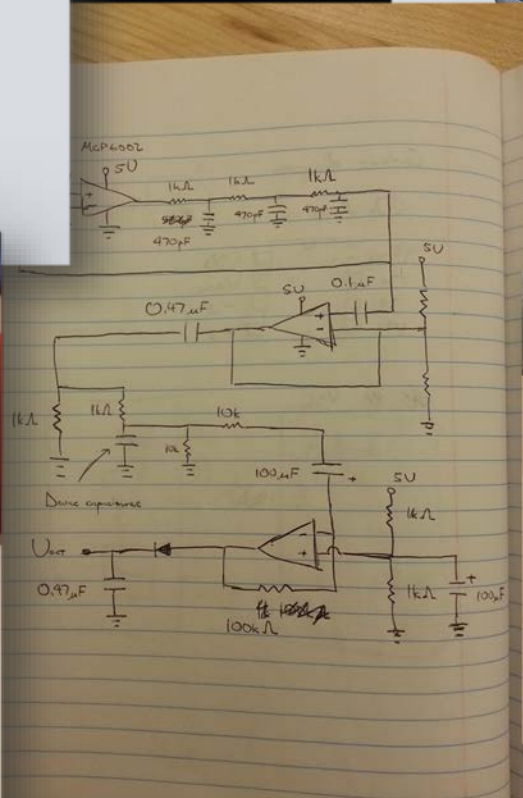 MCP6002
5V
1kΩ 1kΩ 1kΩ
470pF 470pF
470pF
5V
5V 0.1µF
0.47µF
1kΩ 1kΩ 10k
10k
100µF +
5V
Device capacitance
1kΩ
Vout
0.47µF 1kΩ + 100µF
100kΩ